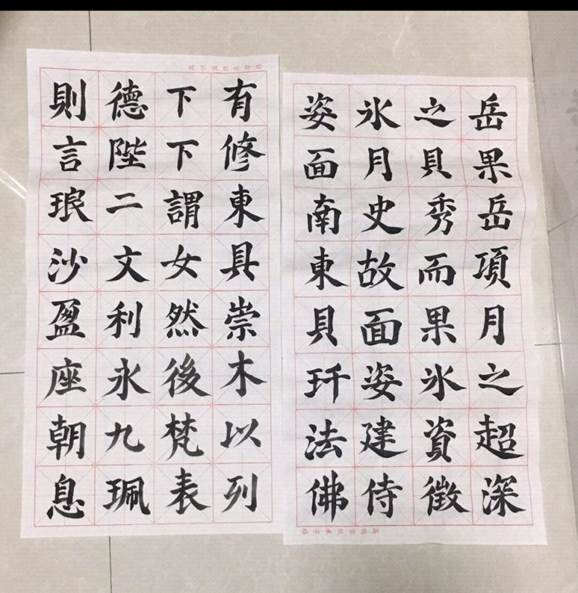 岳果岳項月之超深
之貝秀而果氷資徵
氷月史故面姿建侍
姿面南東貝玕法佛
有修東具崇木以列
下下謂女然後梵表
德陛二文利永九珮
則言琅沙盈座朝息